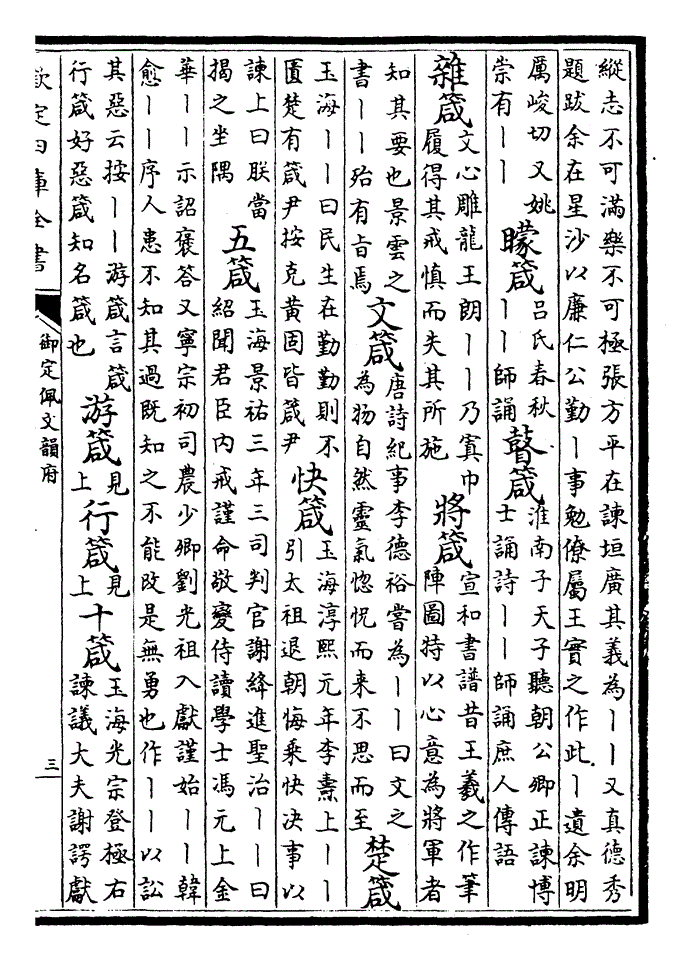 縱志不可滿樂不可極張方平在諫垣廣其義為丨丨又真德秀
題跋余在星沙以廉仁公勤丨事勉僚屬王實之作此丨遺余明
厲峻切又姚
崇有丨丨
矇箴
呂氏春秋
丨丨師誦
瞽箴
淮南子天子聽朝公卿正諫博
士誦詩丨丨師誦庶人傳語
雜箴
文心雕龍王朗丨丨乃寘巾
履得其戒慎而失其所施
將箴
宣和書譜昔王羲之作筆
陣圖特以心意為將軍者
知其要也景雲之
書丨丨殆有旨焉
文箴
唐詩紀事李德裕嘗為丨丨曰文之
為物自然靈氣惚怳而来不思而至
楚箴
玉海丨丨曰民生在勤勤則不
匱楚有箴尹按克黄固皆箴尹
快箴
玉海淳熙元年李燾上丨丨
引太祖退朝悔乘快决事以
諫上曰朕當
揭之坐隅
五箴
玉海景祐三年三司判官謝絳進聖治丨丨曰
紹聞君臣内戒謹命敬變侍讀學士馮元上金
華丨丨示詔褒答又寧宗初司農少卿劉光祖入獻謹始丨丨韓
愈丨丨序人患不知其過既知之不能改是無勇也作丨丨以訟
其惡云按丨丨游箴言箴
行箴好惡箴知名箴也
游箴
見
上
行箴
見
上
十箴
玉海光宗登極右
諫議大夫謝諤獻
欽定四庫全書
御定佩文韻府
三